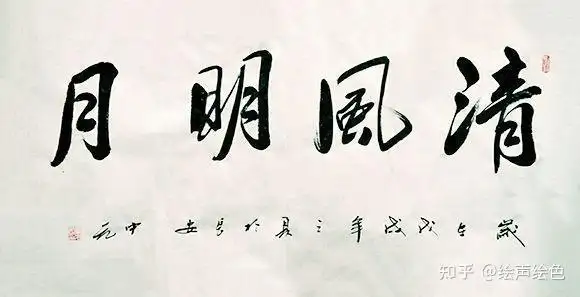 清風明月
歲在戊戌年之夏於長安 中元
知乎 @绘声绘色